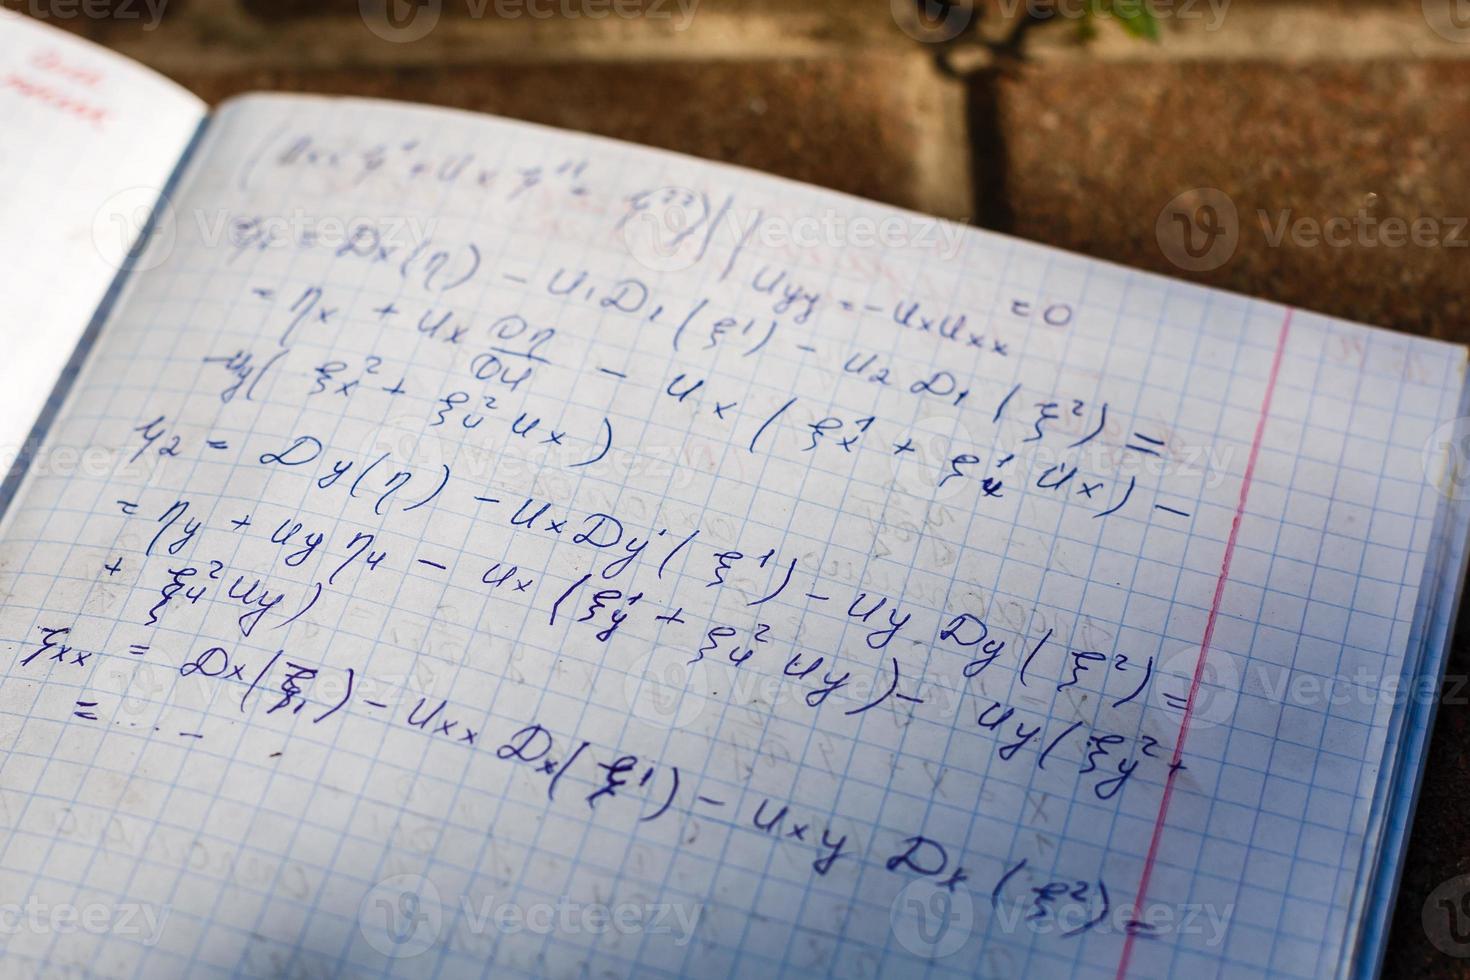 (u_xx ζ^1 + u_x ζ^11 + ζ^22)| | u_yy = -u_x u_xx = 0
ζ_1 = D_x(η) - u_1 D_1(ξ^1) - u_2 D_1(ξ^2) =
= η_x + u_x ∂η/∂u - u_x(ξ_x^1 + ξ_u^1 u_x) -
- u_y(ξ_x^2 + ξ_u^2 u_x)
ζ_2 = D_y(η) - u_x D_y(ξ^1) - u_y D_y(ξ^2) =
= η_y + u_y η_u - u_x(ξ_y^1 + ξ_u^2 u_y) - u_y(ξ_y^2 +
+ ξ_u^2 u_y)
ζ_xx = D_x(ζ_1) - u_xx D_x(ξ^1) - u_xy D_x(ξ^2) =
= ...-
Vecteezy